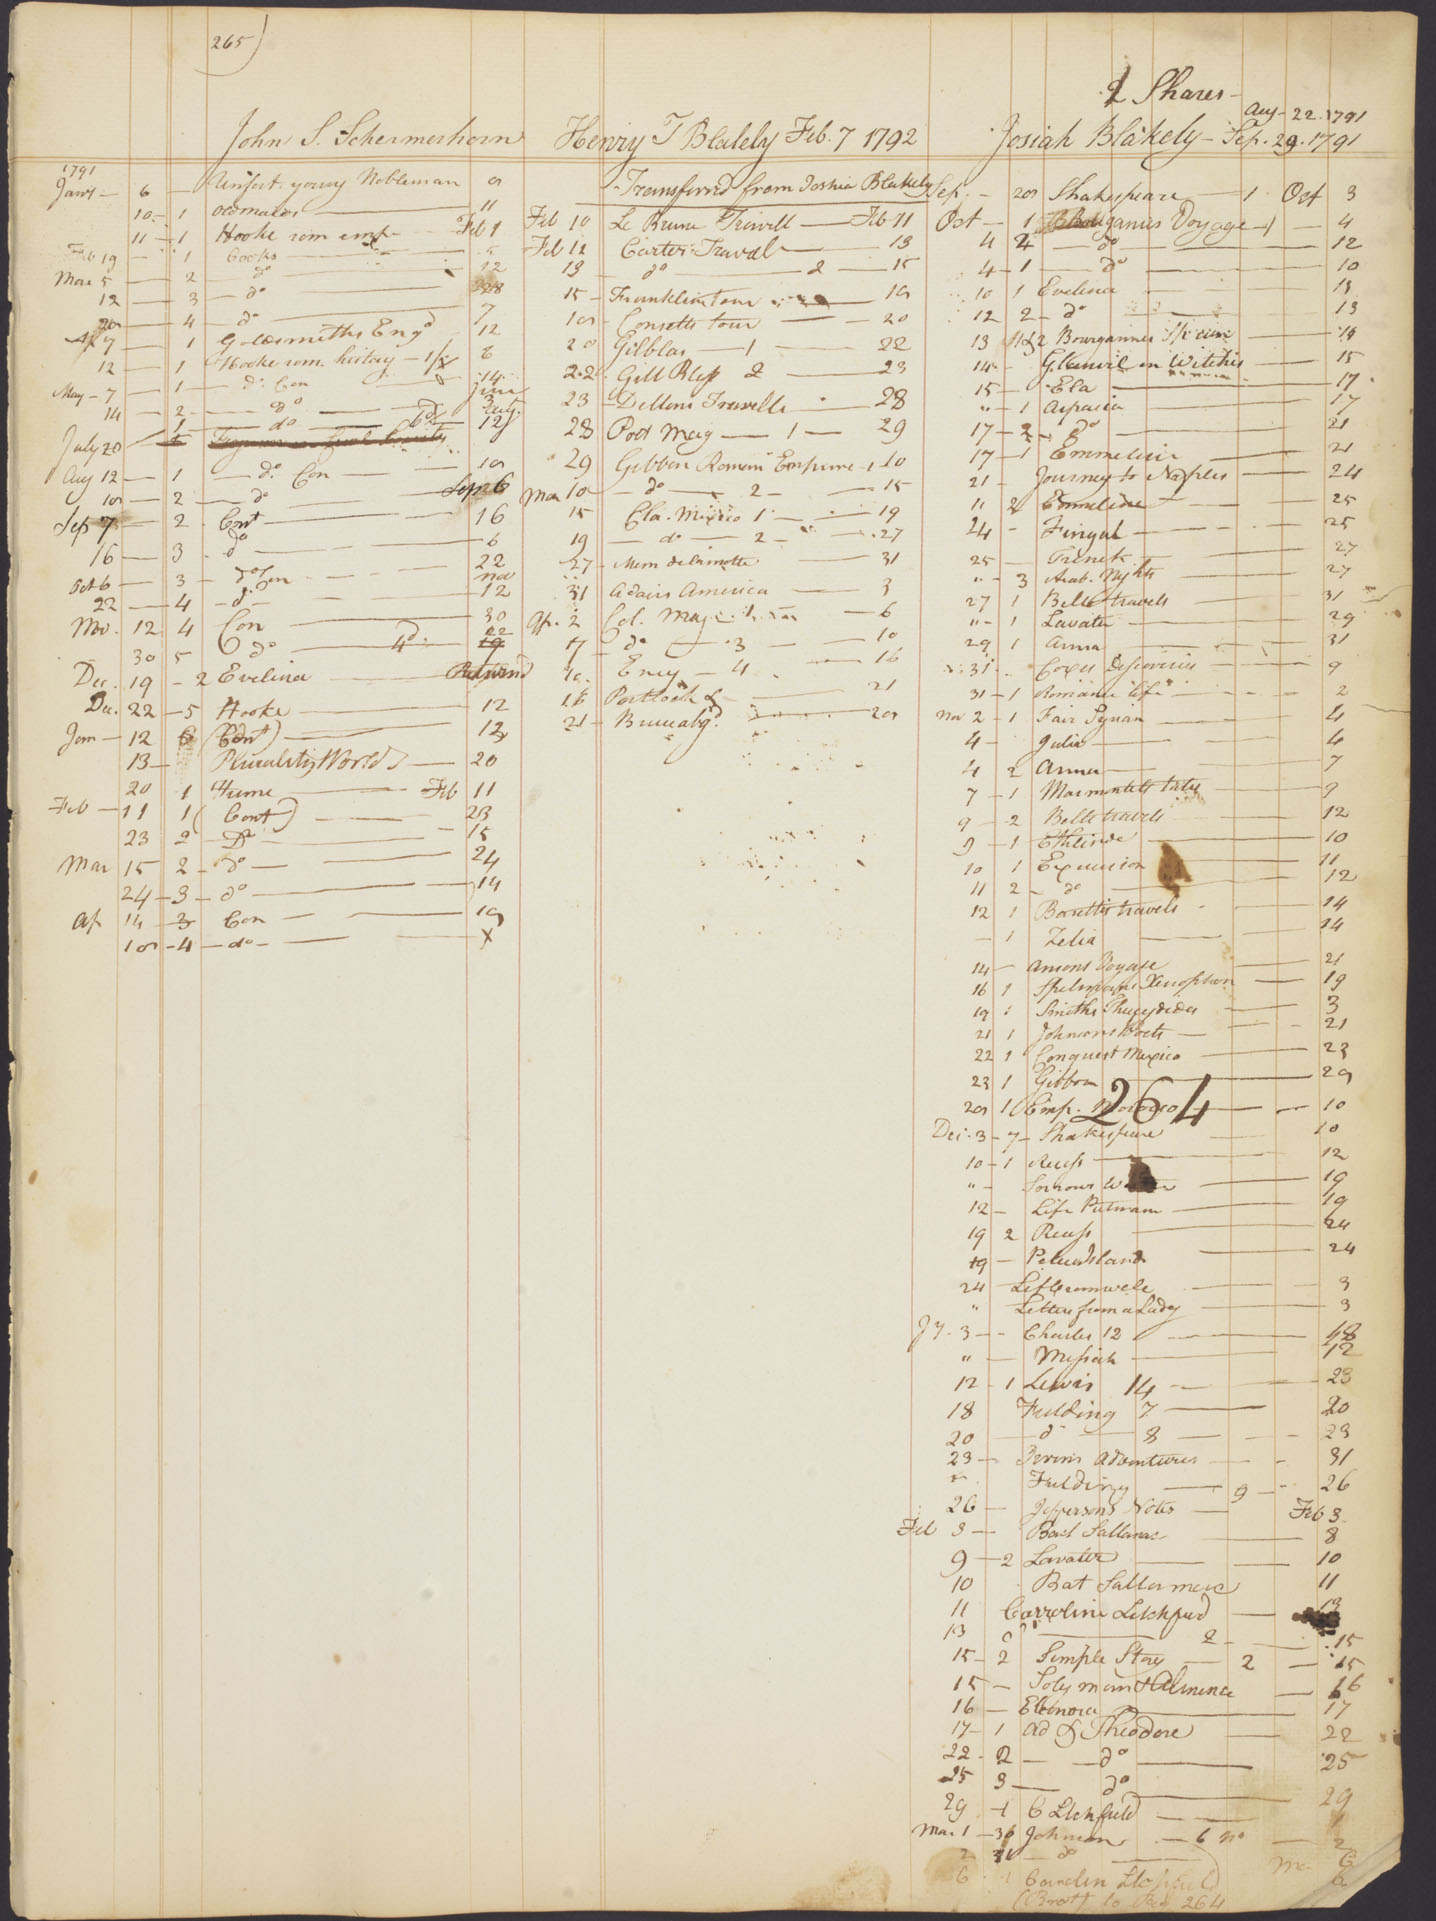 265)
2 Shares
John S. Schermerhorn
1791
Jany 6 Unfort. young Nobleman 9
10 1 Otomacos 11
11 1 Hooke rom emp Feb 1
Feb 19 1 Cooks 5
Mar 5 2 do 12
12 3 do
4 do 7
Ap 7 1 Goldsmiths Engd 12
12 1 Hooke rom. history 6
May 7 1 do. Con 14
14 2 Do June
1 do 12
July 20
Aug 12 1 do. Con 19
19 2 do Sepr 6
Sep 7 2 Cont 16
16 3 do 6
Oct 6 3 do Con 22
22 4 do Nov 12
Nov. 12 4 Con 30
30 5 do 22
Dec. 19 2 Evelina Returned
Dec. 22 5 Hooke 12
Jan 12 6 (Cont) 13
13 Plurality Worlds 20
20 1 Hume Feb 11
Feb 11 1 (Cont) 23
23 2 Do 15
Mar 15 2 do 24
24 3 do 14
Ap 14 3 Con 19
19 4 do X
Henry T Blakely Feb. 7 1792
Transferred from Joshia Blakely
Feb 10 Le Brune Travell Feb 11
Feb 12 Carter Travel 13
13 do 2 15
15 Franklin tour 19
19 Consetts tour 20
20 Gilblas 1 22
22 Gill Blass 2 23
23 Dillons Travells 28
28 Post Mag 1 29
29 Gibbon Roman Empire 1 10
Mar 10 do 2 15
15 Cla. Mexico 1 19
19 do 2 27
27 Mem de lamotte 31
31 Adairs America 3
Ap. 2 Col. Mag. 1 6
7 do 3 10
10 Ency 4 16
16 Portlock & 21
21 Bruce abgd. 29
Josiah Blakely Aug 22. 1791
Sep. 29. 1791
Sep. 29 Shakespeare 1 Oct 3
Oct 1 Bourganvis Voyage 1 4
4 2 do 12
4 1 do 10
10 1 Evelina 13
12 2 do 13
13 1&2 Bourganvis 14
14 Glanvil on Witches 15
15 Ela 17
" 1 Aspacia 17
17 2 do 21
17 1 Emmeline 21
21 Journey to Naples 24
" 2 Emmeline 25
24 Fingal 25
25 Trenck 27
" 3 Arab. Nights 27
27 1 Bells travels 31
" 1 Lavater 29
29 1 Anna 31
31 Coxes Discoveries 9
31 1 Romance life 2
Nov 2 1 Fair Syrian 4
4 Julia 4
4 2 Anna 7
7 1 Marmontells tales 9
9 2 Bells travels 12
9 1 Ethlinde 10
10 1 Excursion 11
11 2 do 12
12 1 Barettis travels 14
1 Zelia 14
14 Ansons Voyage 21
16 1 Spelmans Xenophon 19
19 1 Smiths Thucydides 3
21 1 Johnsons Poets 21
22 1 Conquest Mexico 23
23 1 Gibbon 29
264
29 1 Emp. Morocco 10
Dec. 3 7 Shakespeare 10
10 1 Recess 12
" Sorrows 19
12 Life Putnam 19
19 2 Recess 24
19 Pelew Islands 24
24 Life Cromwele 3
" Letters from a Lady 3
Jy. 3 Charles 12
" Messiah 12
12 1 Lewis 14 23
18 Fielding 7 20
20 do 8 23
23 Adventures 31
" Fielding 9 26
26 Jeffersons Notes Feb 3
Feb 3 8
9 2 Lavater 10
10 11
11 Carroline Litchfield 13
13 do 2 15
15 2 Simple Story 2 15
15 Solyman & Almena 16
16 Elenora 17
17 1 Ad of Theodore 22
22 2 do 25
25 3 do 29
29 1 C Litchfield 1
Mar 1 36 Johnson 6 no 2
2 31 do Mar 6
6 1 Carolin Litchfield
(Brot to Pag 264